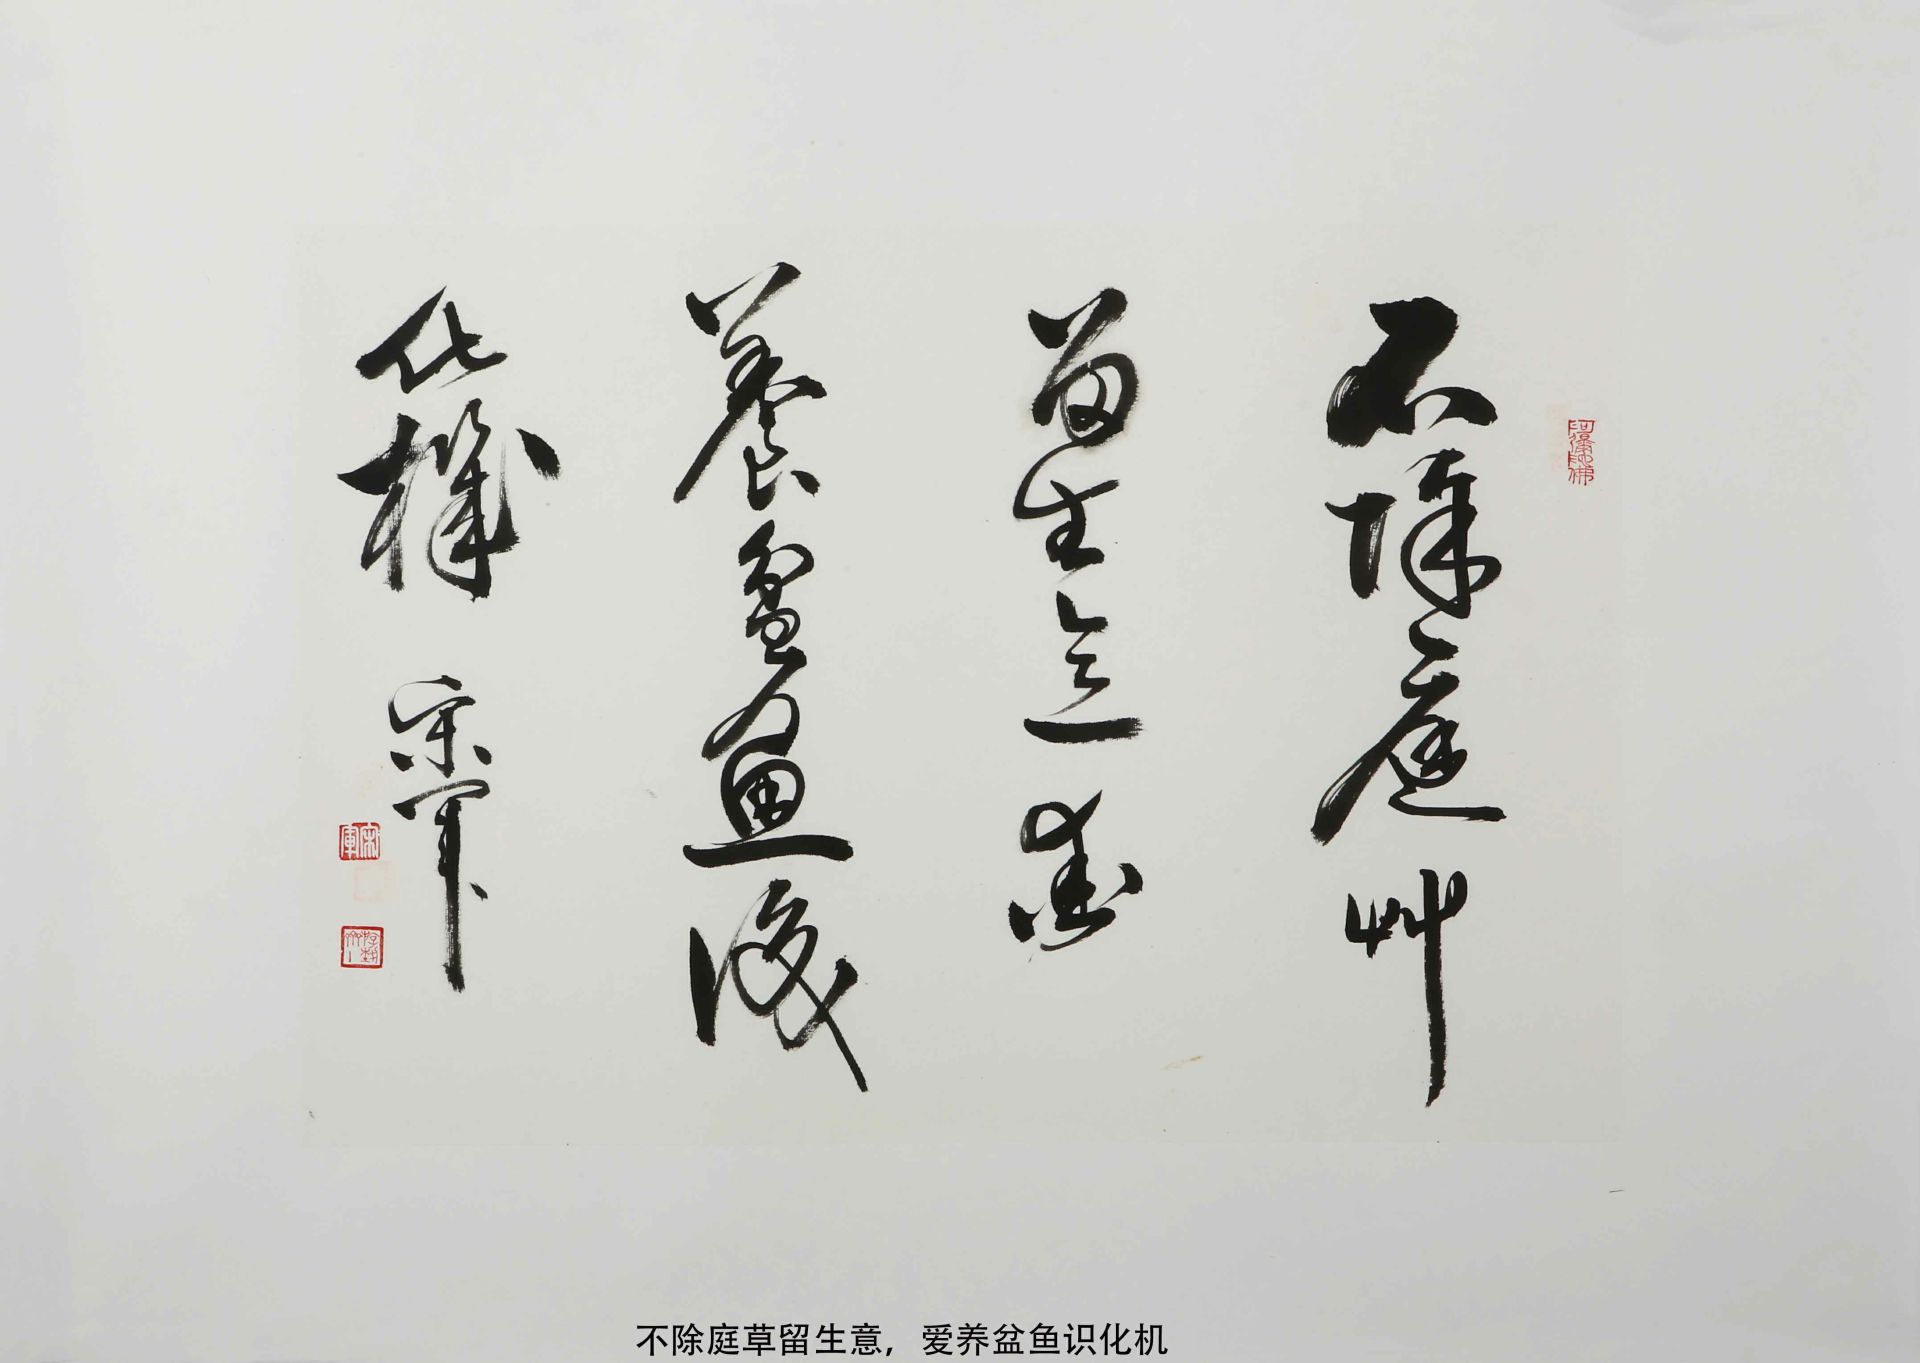 不除庭艸
留生意愛
養盆魚識
化機
宋軍
宋軍
不除庭草留生意，爱养盆鱼识化机